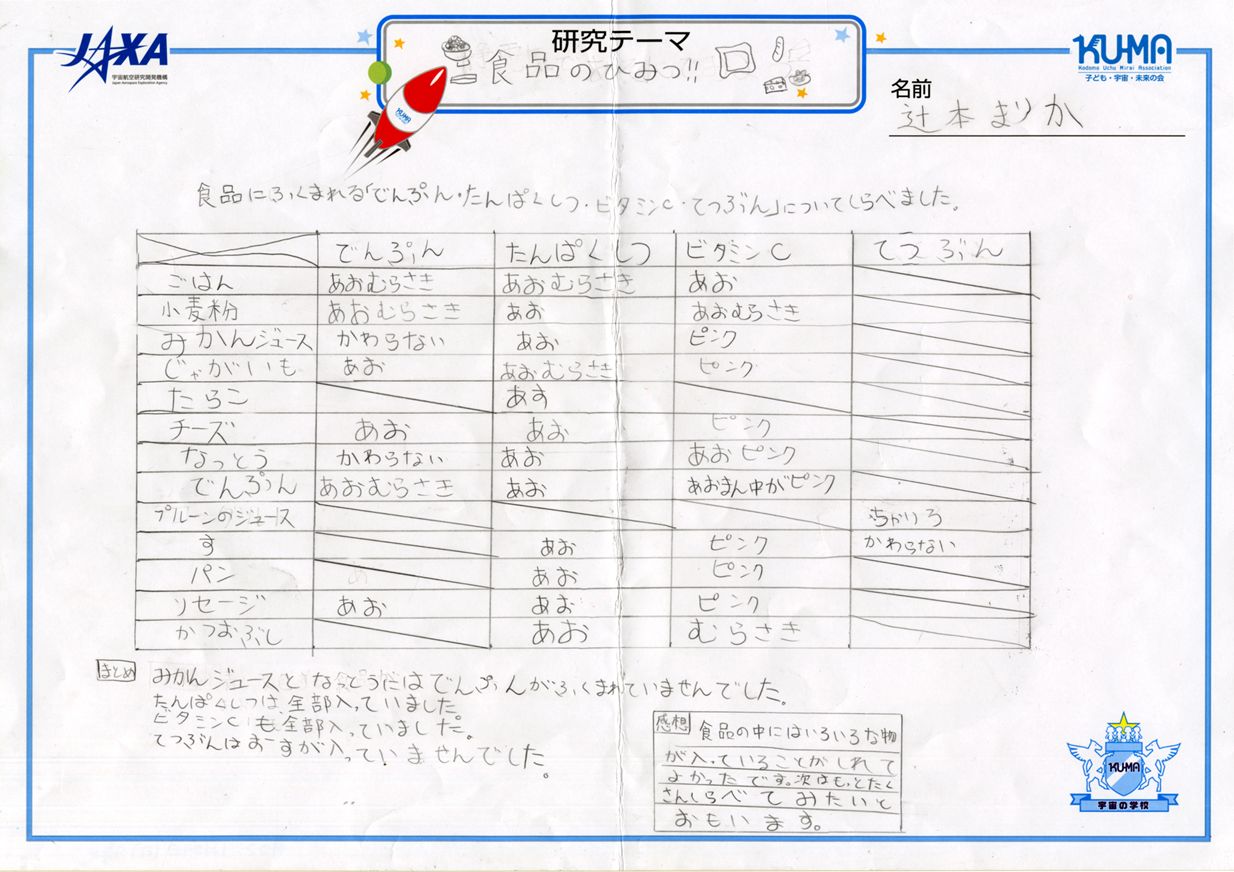 JAXA
宇宙航空研究開発機構
Japan Aerospace Exploration Agency
研究テーマ
食品のひみつ!!
KUMA
KU-MA
Kodomo Uchu Mirai Association
子ども・宇宙・未来の会
名前
辻本まりか
食品にふくまれる「でんぷん・たんぱくしつ・ビタミンC・てつぶん」についてしらべました。
でんぷん たんぱくしつ ビタミンC てつぶん
ごはん あおむらさき あおむらさき あお
小麦粉 あおむらさき あお あおむらさき
みかんジュース かわらない あお ピンク
じゃがいも あお あおむらさき ピンク
たらこ あす
チーズ あお あお ピンク
なっとう かわらない あお あおピンク
でんぷん あおむらさき あお あおまん中がピンク
プルーンのジュース
す あお ピンク かわらない
パン あお ピンク
ソセージ あお あお ピンク
かつおぶし あお むらさき
まとめ
みかんジュースとなっとうにはでんぷんがふくまれていませんでした。
たんぱくしつは、全部入っていました
ビタミンCも全部入っていました。
てつぶんはおすが入っていませんでした。
感想 食品の中にはいろいろな物
が入っていることがしれて
よかったです。次はもっとたく
さんしらべてみたいと
おもいます。
KU-MA
宇宙の学校